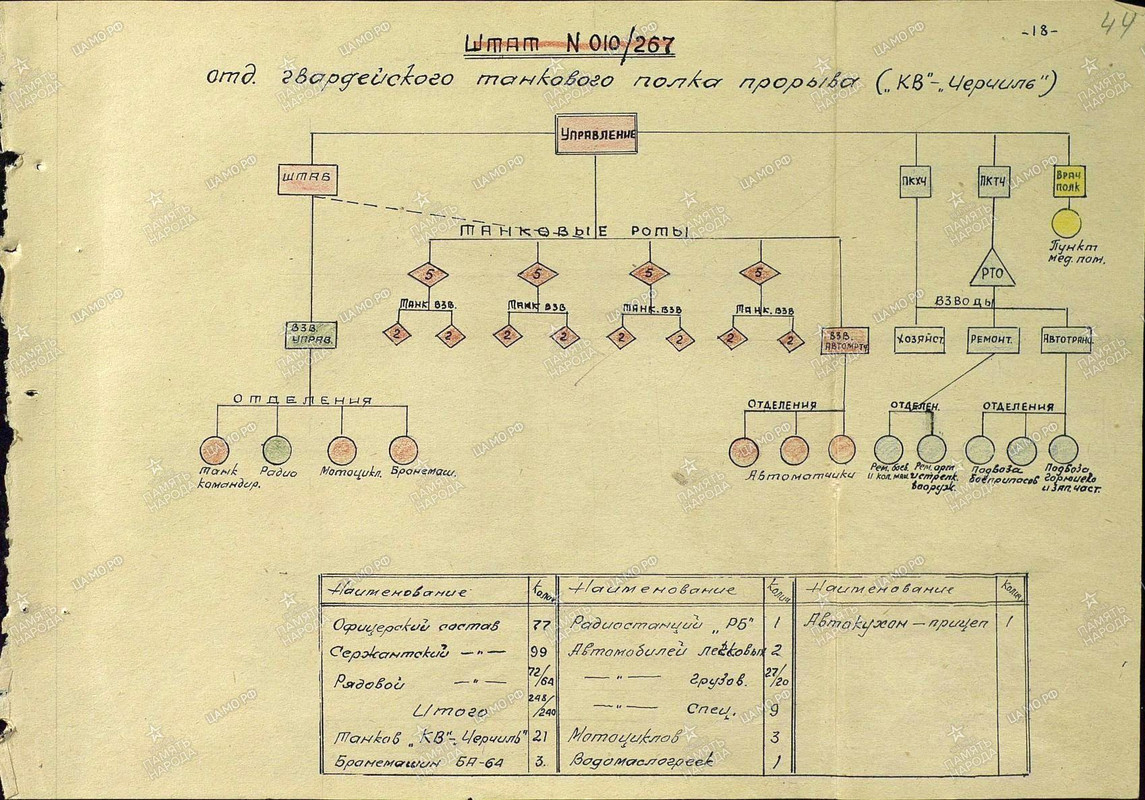 -18-
44
ШТАТ N 010/267
отд. гвардейского танкового полка прорыва („КВ"-„Черчиль")
УПРАВЛЕНИЕ
ШТАБ
ПКХЧ
ПКТЧ
ВРАЧ
ПОЛК
Пункт
мед. пом.
ТАНКОВЫЕ РОТЫ
5 5 5 5
РТО
ТАНК. ВЗВ. ТАНК. ВЗВ. ТАНК. ВЗВ ТАНК. ВЗВ.
2 2 2 2 2 2 2 2
ВЗВОДЫ
ВЗВ.
УПРАВ.
ВЗВ.
АВТОМАТЧ
ХОЗЯЙСТ.
РЕМОНТ.
АВТОТРАНС.
ОТДЕЛЕНИЯ
ОТДЕЛЕНИЯ
ОТДЕЛЕН.
ОТДЕЛЕНИЯ
танк
командир.
Радио
Мотоцикл.
Бронемаш.
Автоматчики
Рем. боев.
и кол. маш.
Рем. арт
и стрелк.
вооруж.
Подвоза
боеприпасов
Подвоза
горючего
и зап. част.
Наименование Колич. Наименование Колич. Наименование Колич.
Офицерский состав 77 Радиостанций „РБ" 1 Автокухон — прицеп 1
Сержантский —"— 99 Автомобилей легковых 2
Рядовой —"— 72/64 —"— грузов. 27/20
Итого 248/240 —"— спец. 9
Танков „КВ"-„Черчиль" 21 Мотоциклов 3
Бронемашин БА-64 3. Водомаслогреек 1
ПАМЯТЬ
НАРОДА
ЦАМО.РФ